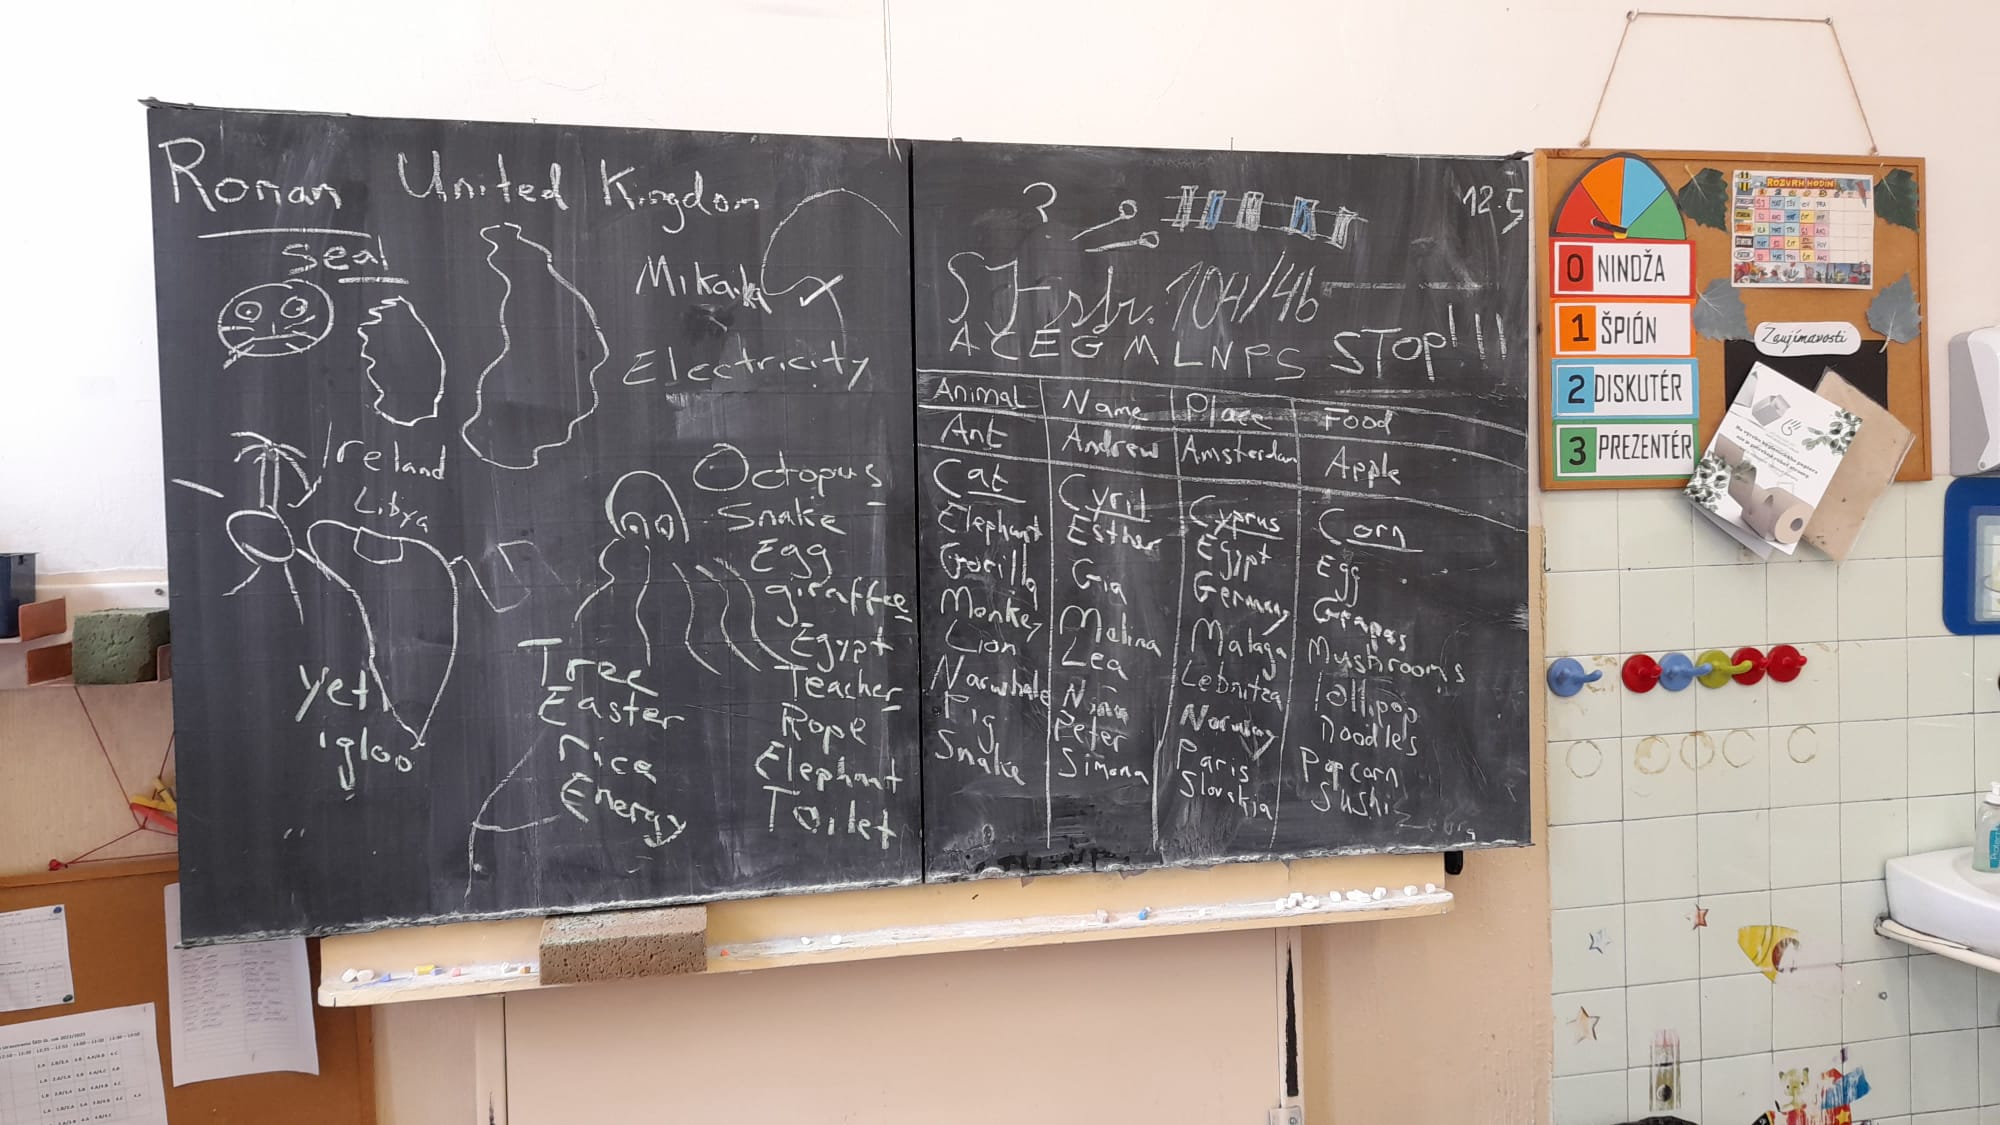 Ronan United Kingdom
Seal
Mikaila
Electricity
Ireland
Libya
Octopus
Snake
Egg
giraffee
Egypt
Teacher
Rope
Elephant
Toilet
Tree
Easter
Energy
Yeti
igloo
?
12.5
SJ str. 104/4b
A C E G M L N P S STOP!!!
Animal Name Place Food
Ant Andrew Amsterdam Apple
Cat Cyril Cyprus Corn
Elephant Esther Egypt Egg
Gorilla Gia Germany Grapas
Monkey Melina Malaga Mushrooms
Lion Lea Lebnitza lollipop
Narwhale Nina Norway Noodles
Pig Peter Paris Popcorn
Snake Simona Slovakia Sushi
ROZVRH HODÍN
0 NINDŽA
1 ŠPIÓN
2 DISKUTÉR
3 PREZENTÉR
Zaujímavosti